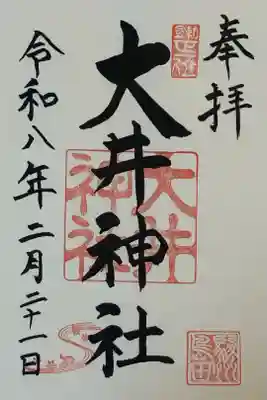 奉拝
大井神社
令和八年二月二十一日
大井
神社